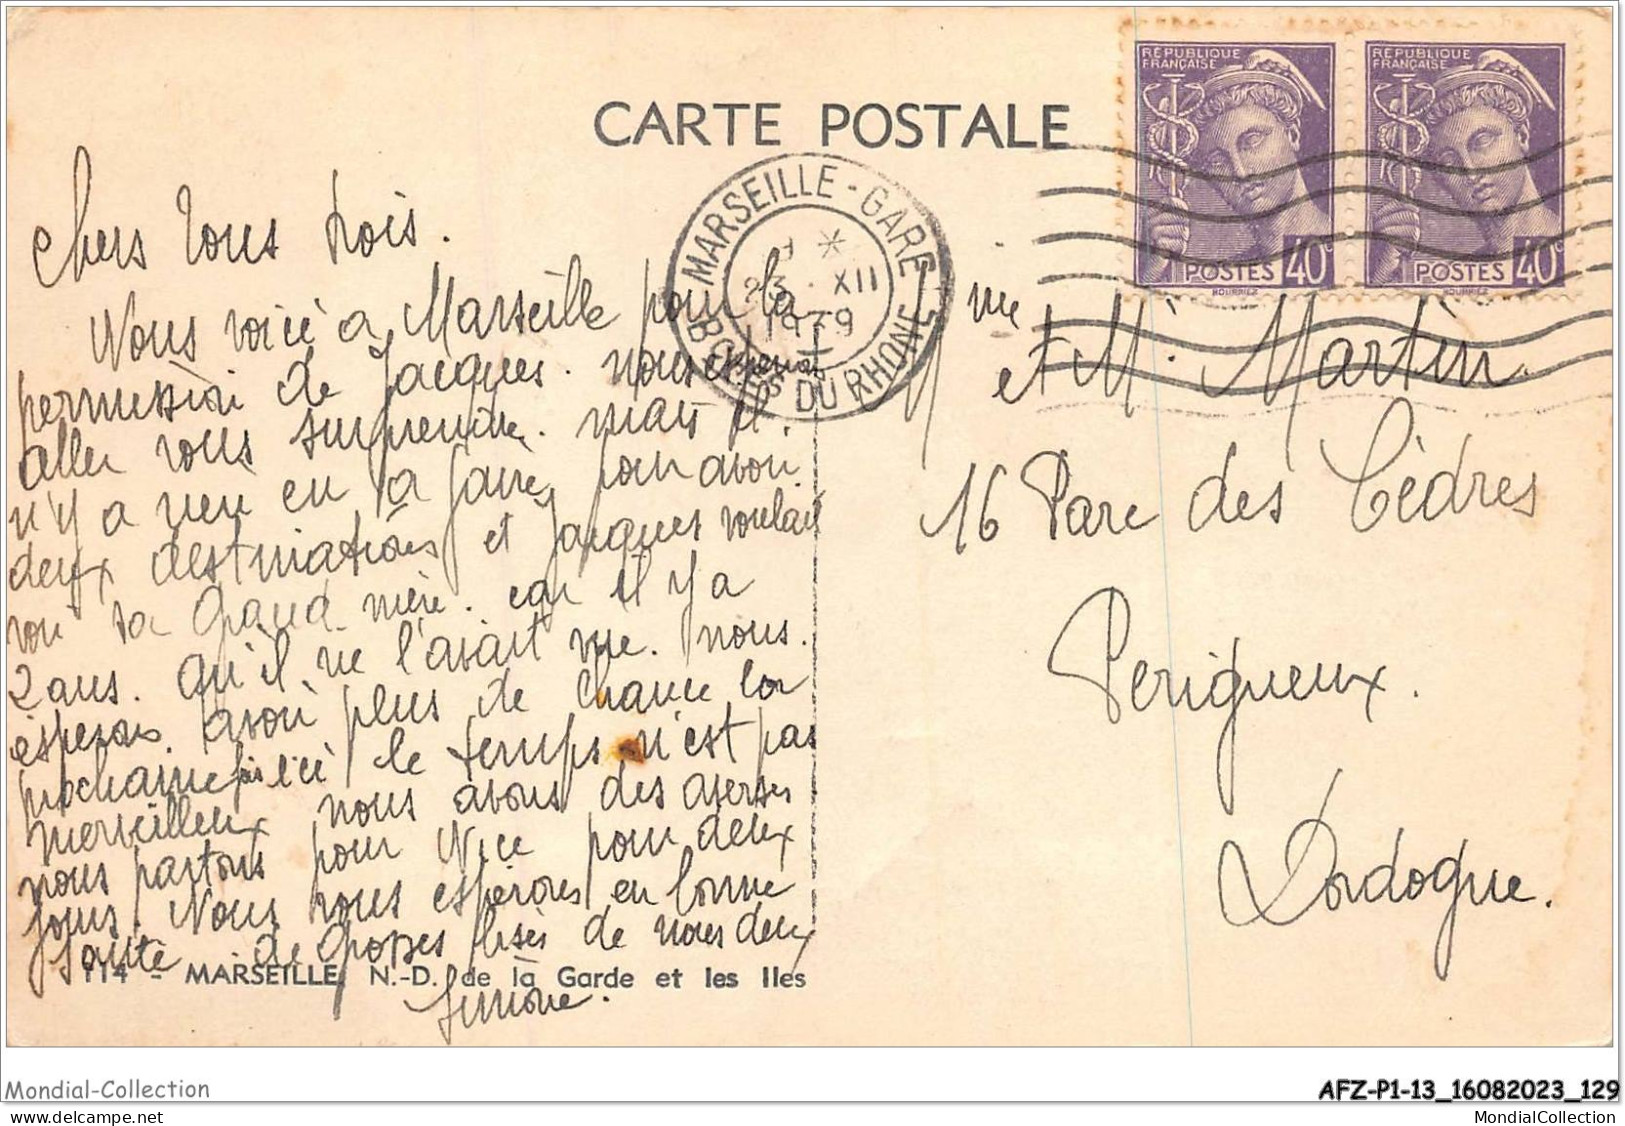 CARTE POSTALE
RÉPUBLIQUE
FRANÇAISE
POSTES 40c
HOURRIEZ
RÉPUBLIQUE
FRANÇAISE
POSTES 40c
HOURRIEZ
MARSEILLE-GARE
BCHES DU RHONE
23 XII
1939
Chers vous trois.
Nous voici à Marseille pour la
permission de Jacques. nous
aller vous surprendre. mais il
n'y a rien eu à faire pour avoir
deux destinations et Jacques voulait
voir sa Grand mère. car il y a
2 ans. qu'il ne l'avait vue. nous.
espérons avoir plus de chance la
prochaine fois ici le temps n'est pas
merveilleux nous avons des averses
nous partons pour Nice pour deux
jours. Nous vous espérons en bonne
santé de Grosses bises de nous deux
Simone.
M me et M. Martin
16 Parc des Cèdres
Périgueux.
Dordogne.
114 - MARSEILLE, N.-D. de la Garde et les Iles
Mondial-Collection
AFZ-P1-13_16082023_129
MondialCollection